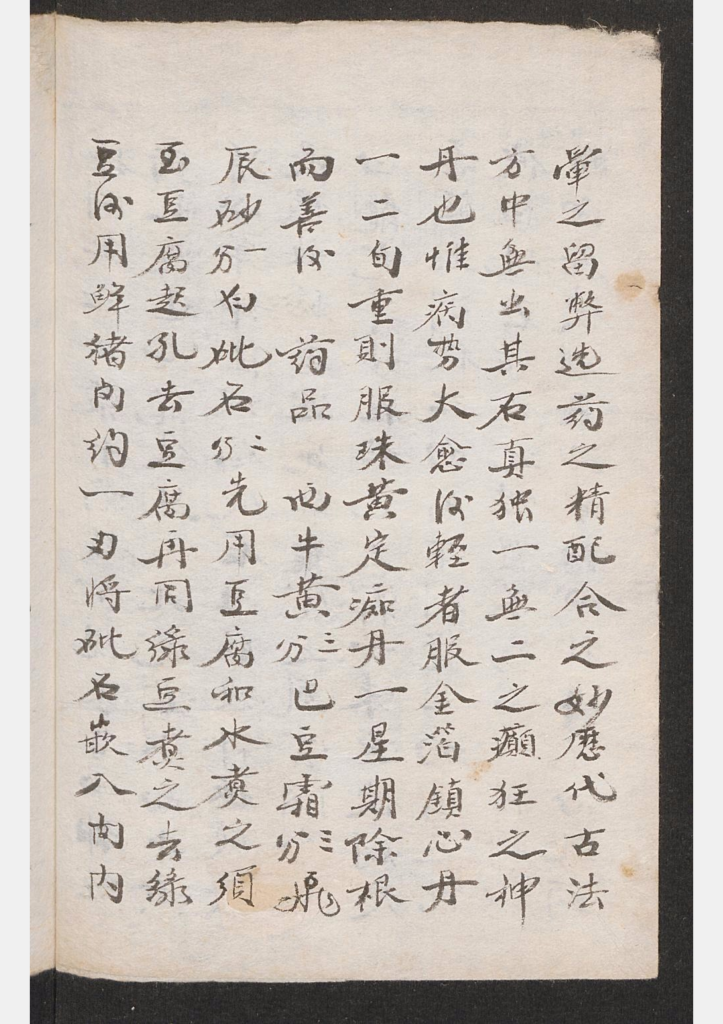 暈之留弊选药之精配合之妙歷代古法
方中無出其右真独一無二之癲狂之神
丹也惟病势大愈後輕者服金箔鎮心丹
一二旬重則服珠黄定痴丹一星期除根
而善後 药品 西牛黄三分巴豆霜三分飛
辰砂一分白砒石二分先用豆腐和水煮之須
至豆腐起孔去豆腐再同綠豆煮之去綠
豆後用鮮猪肉約一刃將砒石嵌入肉内